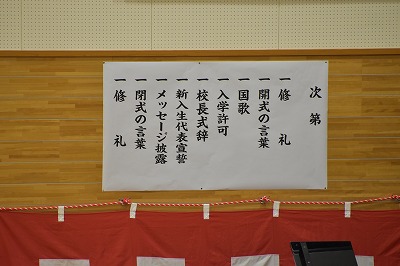 次第
一 修礼
一 開式の言葉
一 国歌
一 入学許可
一 校長式辞
一 新入生代表宣誓
一 メッセージ披露
一 閉式の言葉
一 修礼